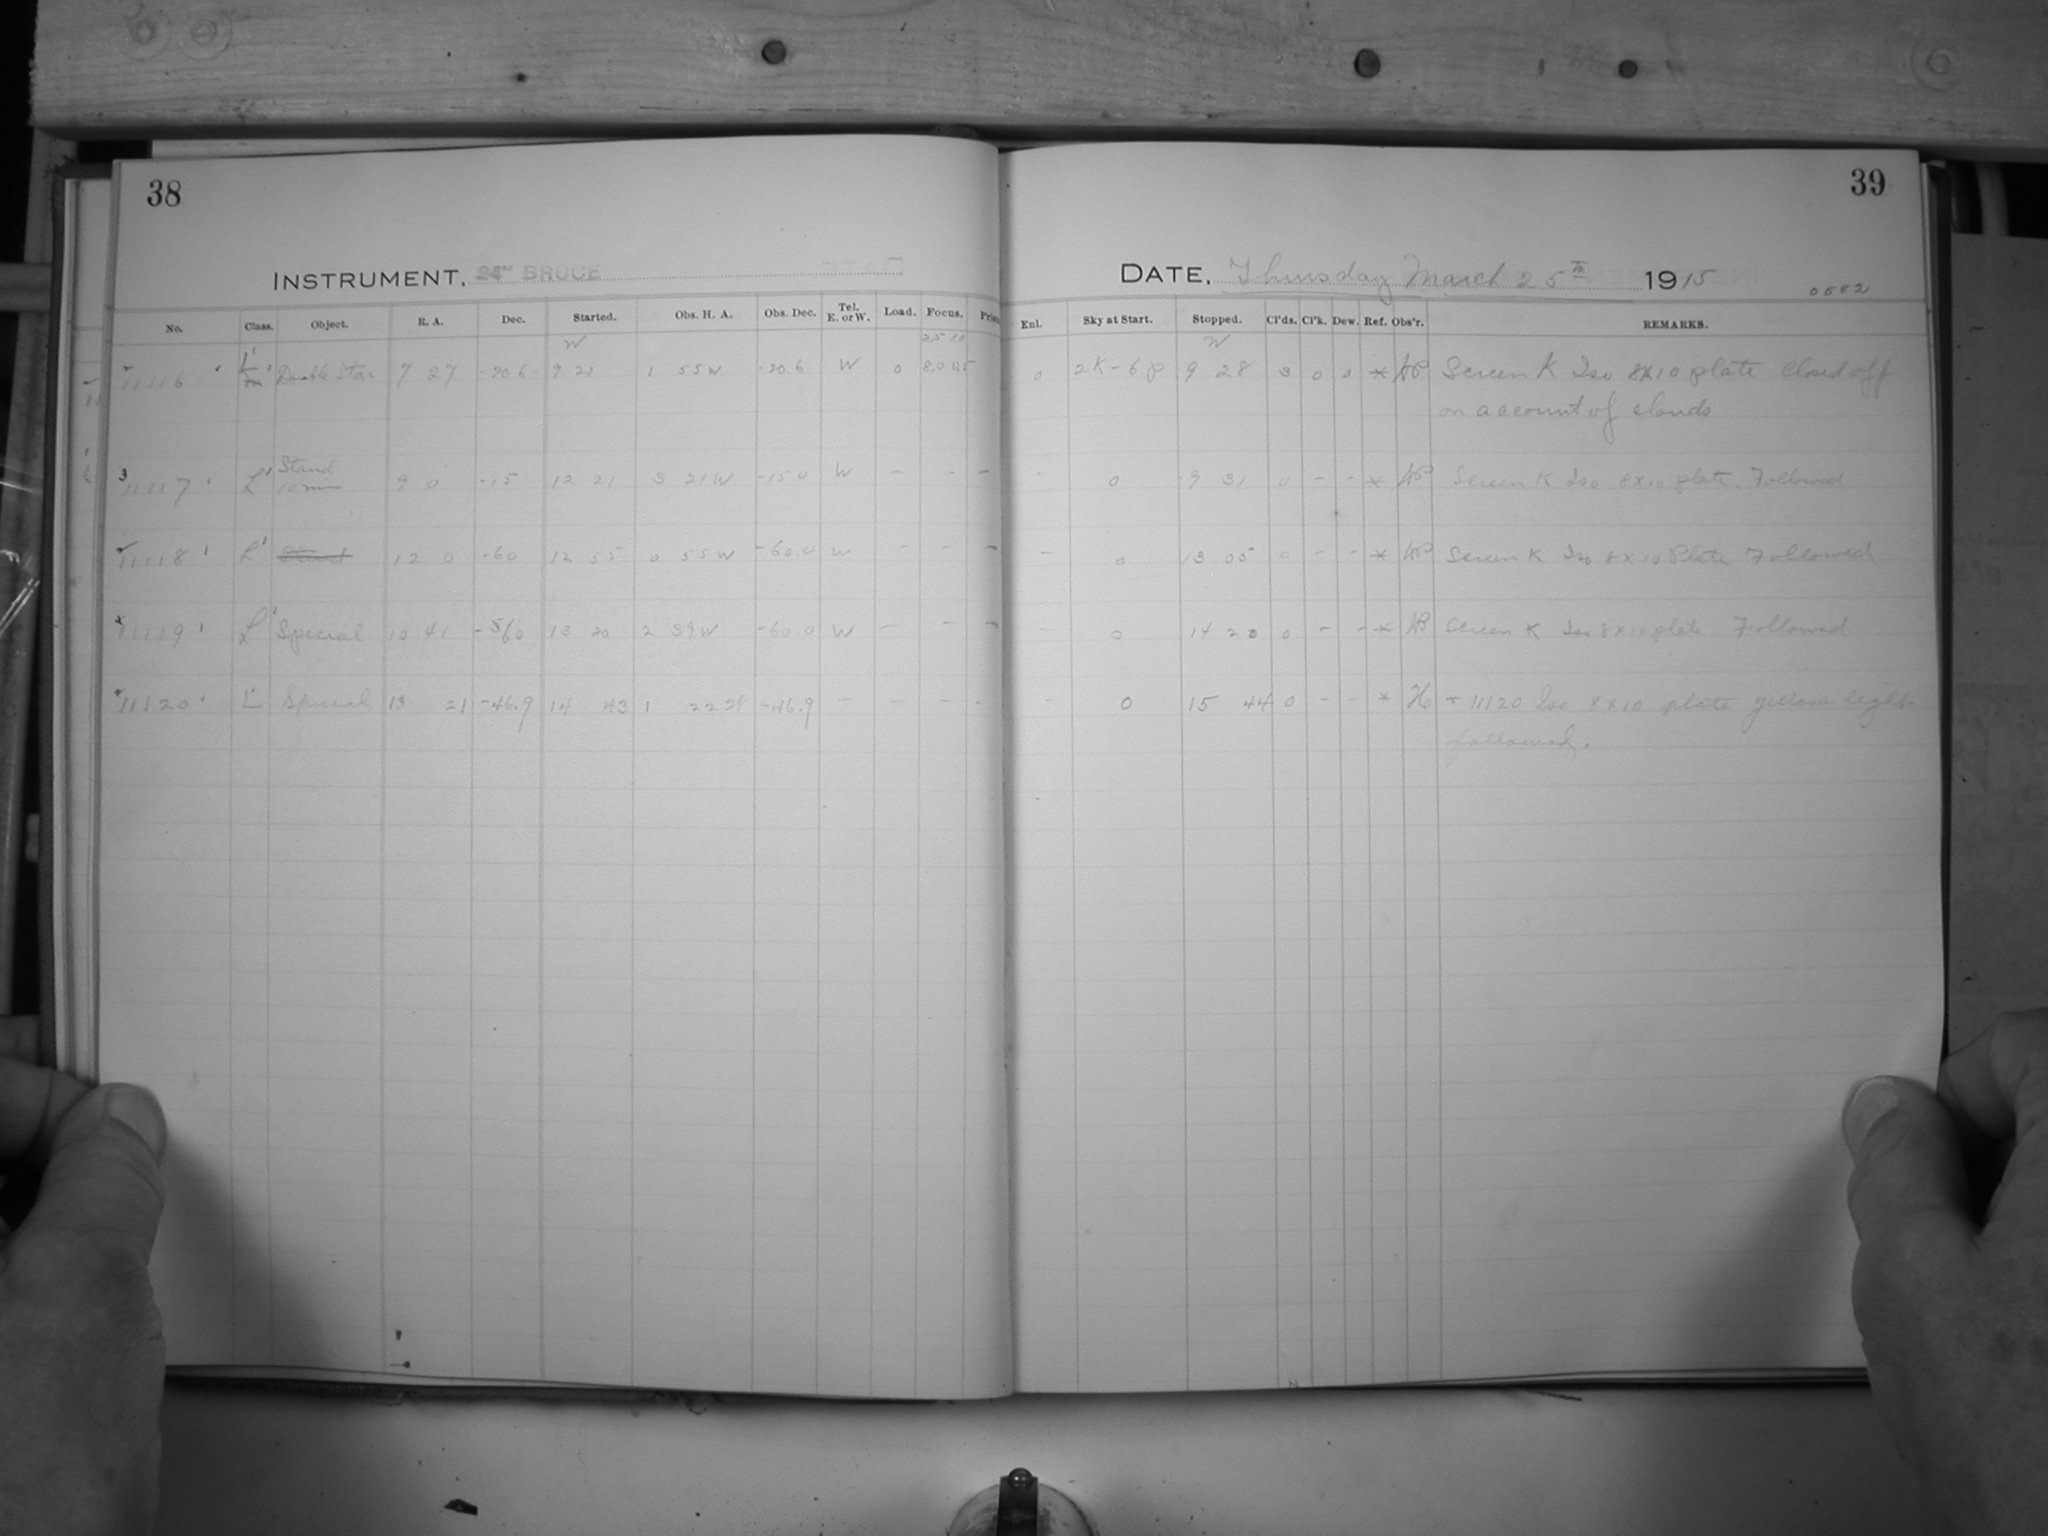 38
39
INSTRUMENT, 24" BRUCE
DATE, Thursday March 25th 1915
0582
No. Class. Object. R. A. Dec. Started. Obs. H. A. Obs. Dec. Tel. E. or W. Load. Focus. Prism Enl. Sky at Start. Stopped. Cl'ds. Cl'k. Dew. Ref. Obs'r. REMARKS.
W W
11116 L' Double Star 7 27 -20.6 9 21 1 55 W -20.6 W 0 0 2K-6p 9 28 3 0 0 * Screen K Iso 8x10 plate Closed off
on account of clouds
Stand
11117 L' 10 min 9 0 -15 12 21 3 21 W -15 0 W - - - - 0 9 31 0 - - * Screen K Iso 8x10 plate. Followed
11118 L' 12 0 -60 12 55 0 55 W -60.0 W - - - - 0 13 05 0 - - * Screen K Iso 8x10 Plate Followed
11119 L' Special 10 41 -60 13 20 2 39 W -60 0 W - - - 0 14 20 0 - - * Screen K Iso 8x10 plate Followed
11120 L' Special 13 21 -46.9 14 43 1 22 -46.9 - - - - - 0 15 44 0 - - * H * 11120 Iso 8x10 plate yellow light
followed.